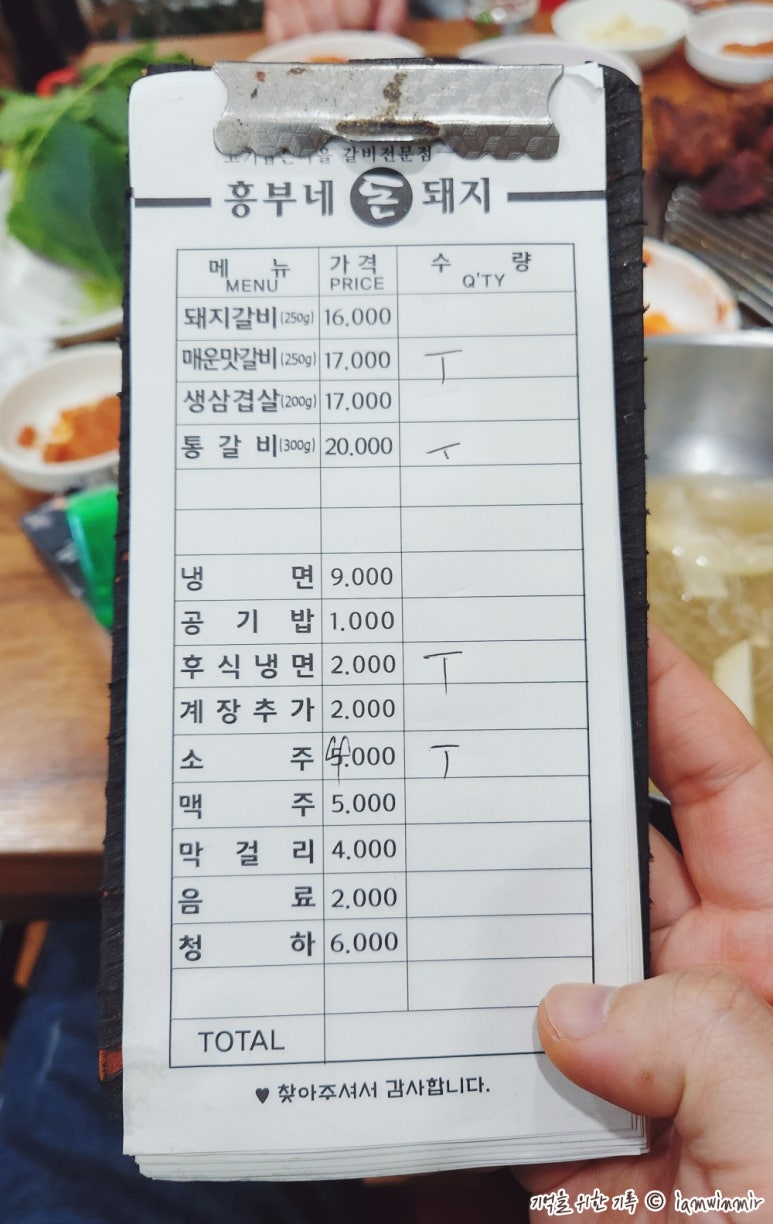 갈비전문점
흥부네 큰 돼지
메 뉴 가 격 수 량
MENU PRICE Q'TY
돼지갈비(250g) 16.000
매운맛갈비(250g) 17.000 T
생삼겹살(200g) 17.000
통 갈 비(300g) 20.000 T
냉 면 9.000
공 기 밥 1.000
후 식 냉 면 2.000 T
계 장 추 가 2.000
소 주 4.000 T
맥 주 5.000
막 걸 리 4.000
음 료 2.000
청 하 6.000
TOTAL
♥ 찾아주셔서 감사합니다.
기억을 위한 기록 © iamwinmir